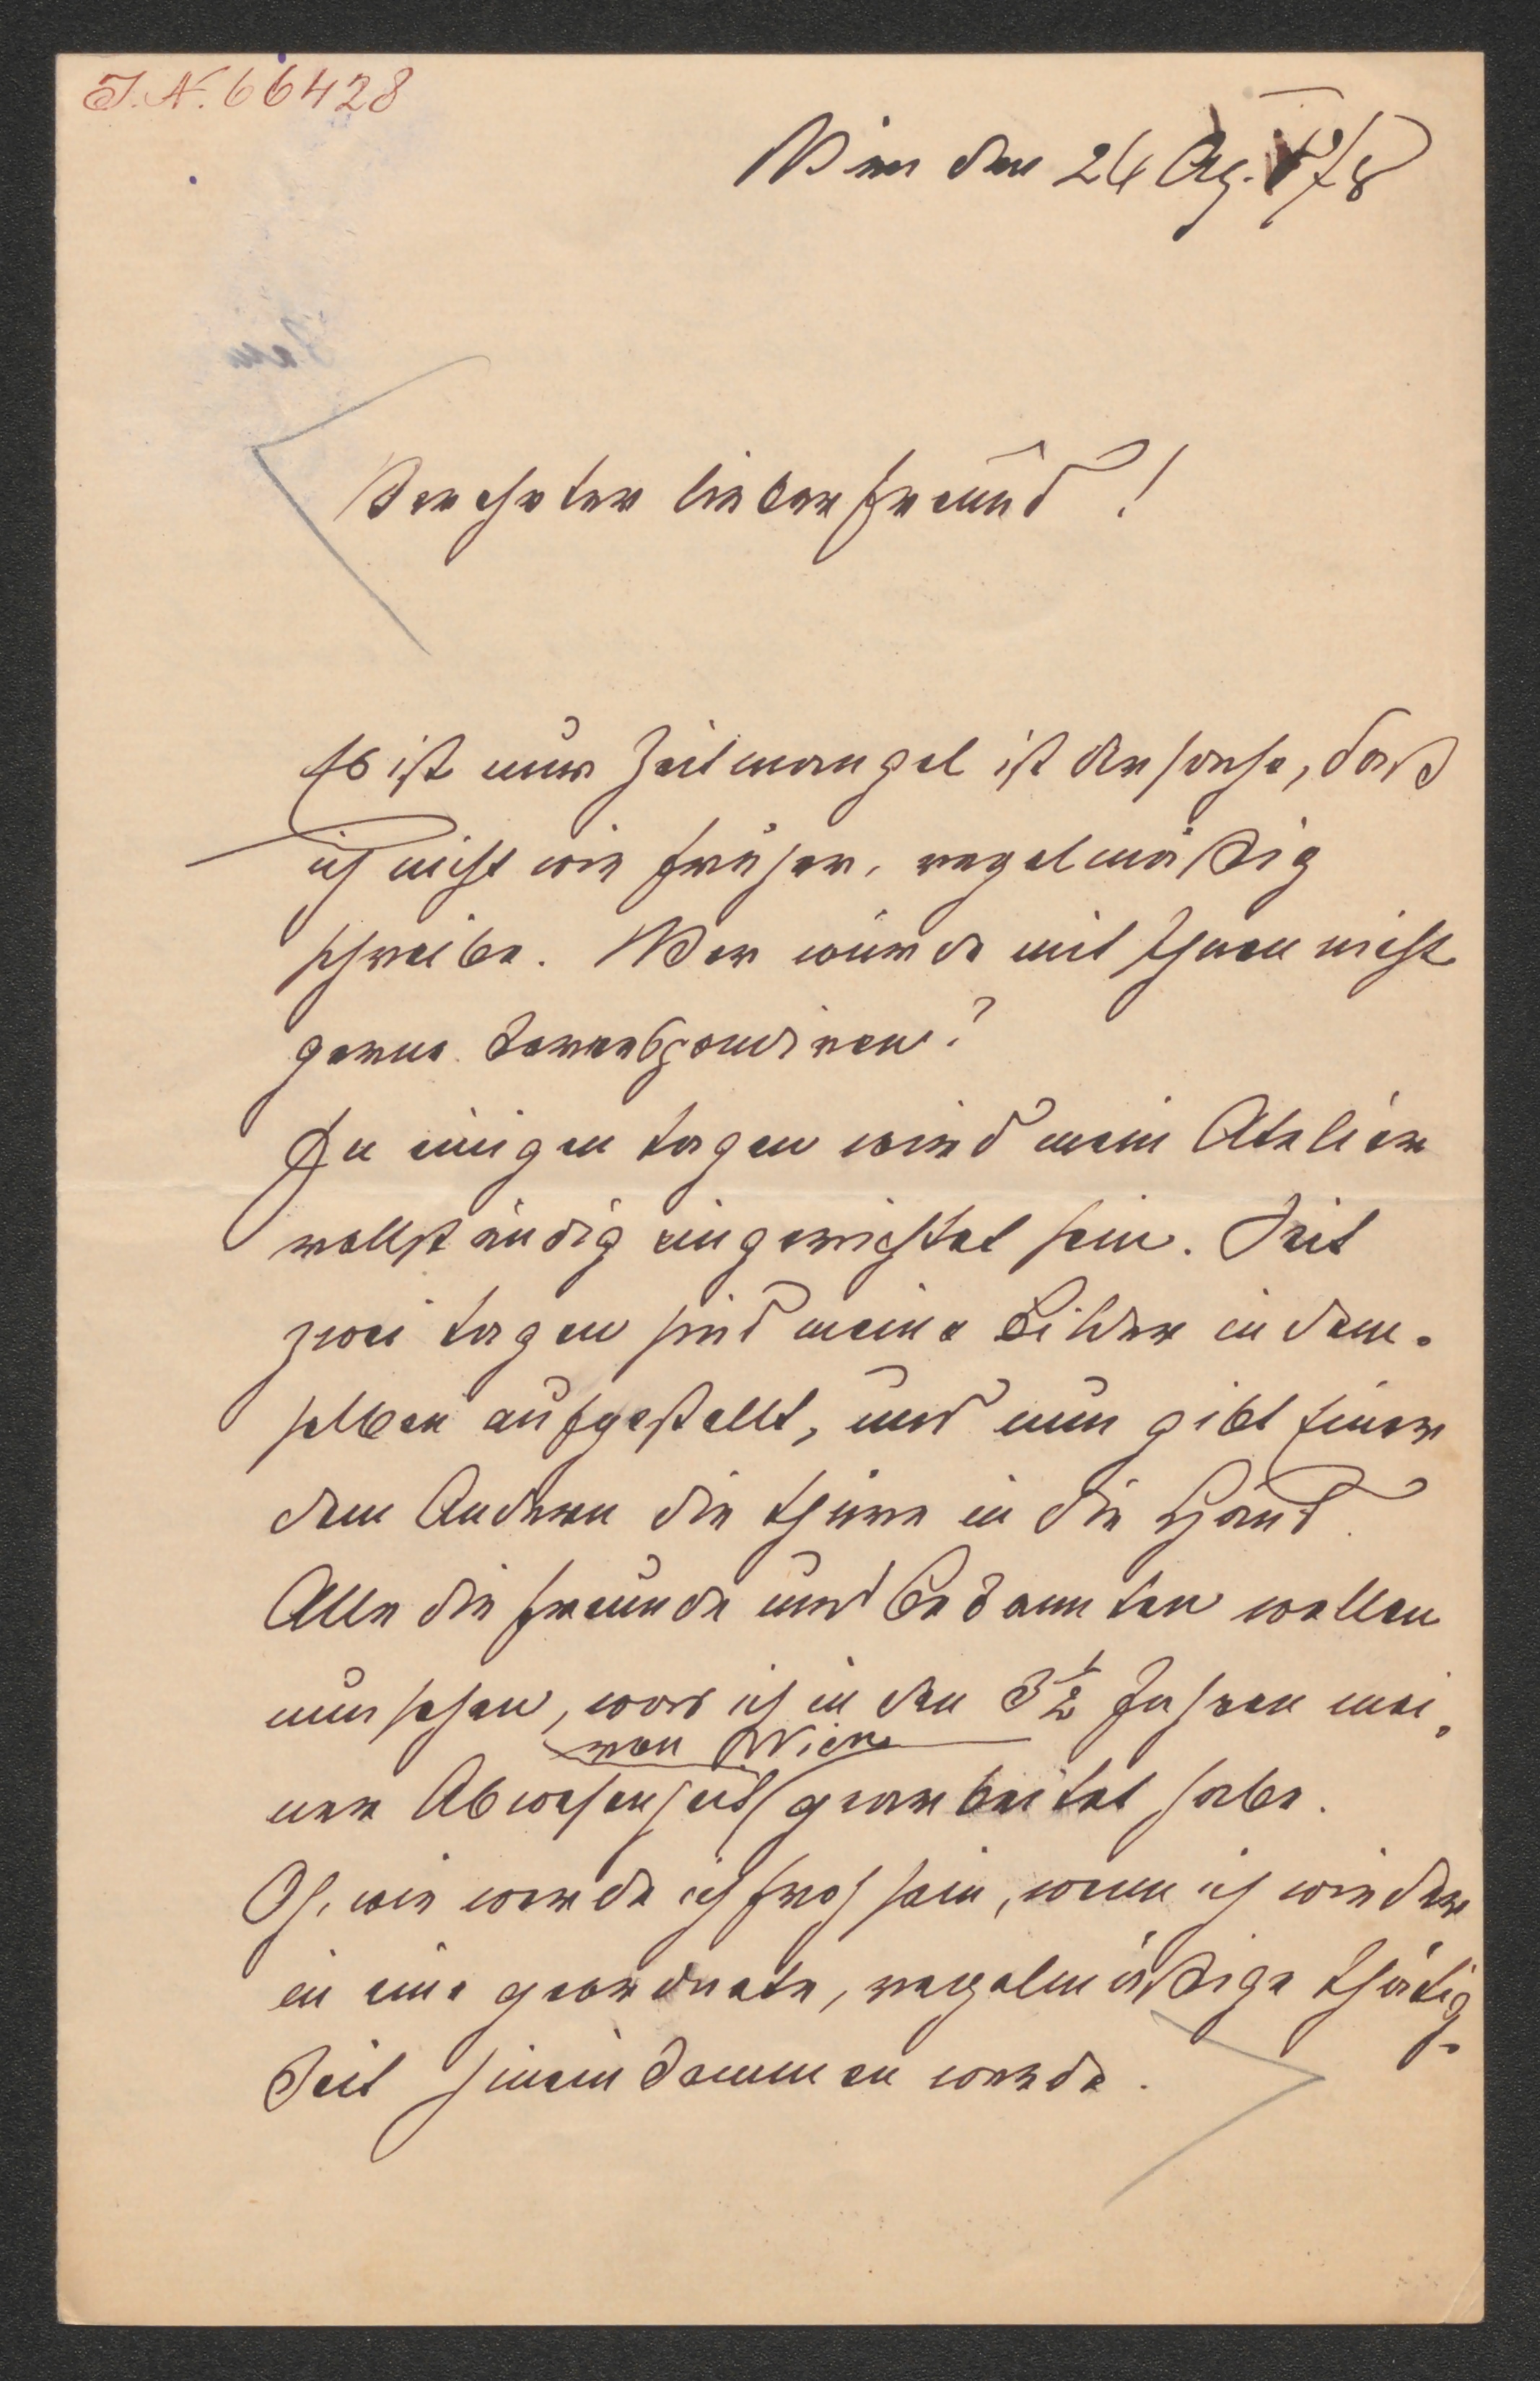 J. N. 66428
Wien den 26 Ag. 878
Verehrter lieber Freund!
Es ist nur Zeitmangel ist Ursache, daß
ich nicht wie früher, regelmäßig
schreibe. Wer würde mit Ihnen nicht
gerne korrespondiren?
In einigen Tagen wird mein Atelier
vollständig eingerichtet sein. Seit
zwei Tagen sind meine Bilder in dem-
selben aufgestellt, und nun gibt Einer
dem Anderen die Thüre in die Hand.
Alle die Freunde und Bekannten wollen
nun sehen, was ich in den 3½ Jahren mei-
von Wien
ner Abwesenheit gearbeitet habe.
Oh, wie werde ich froh sein, wenn ich wieder
in eine geordnete, regelmäßige Thätig-
keit hineinkommen werde.